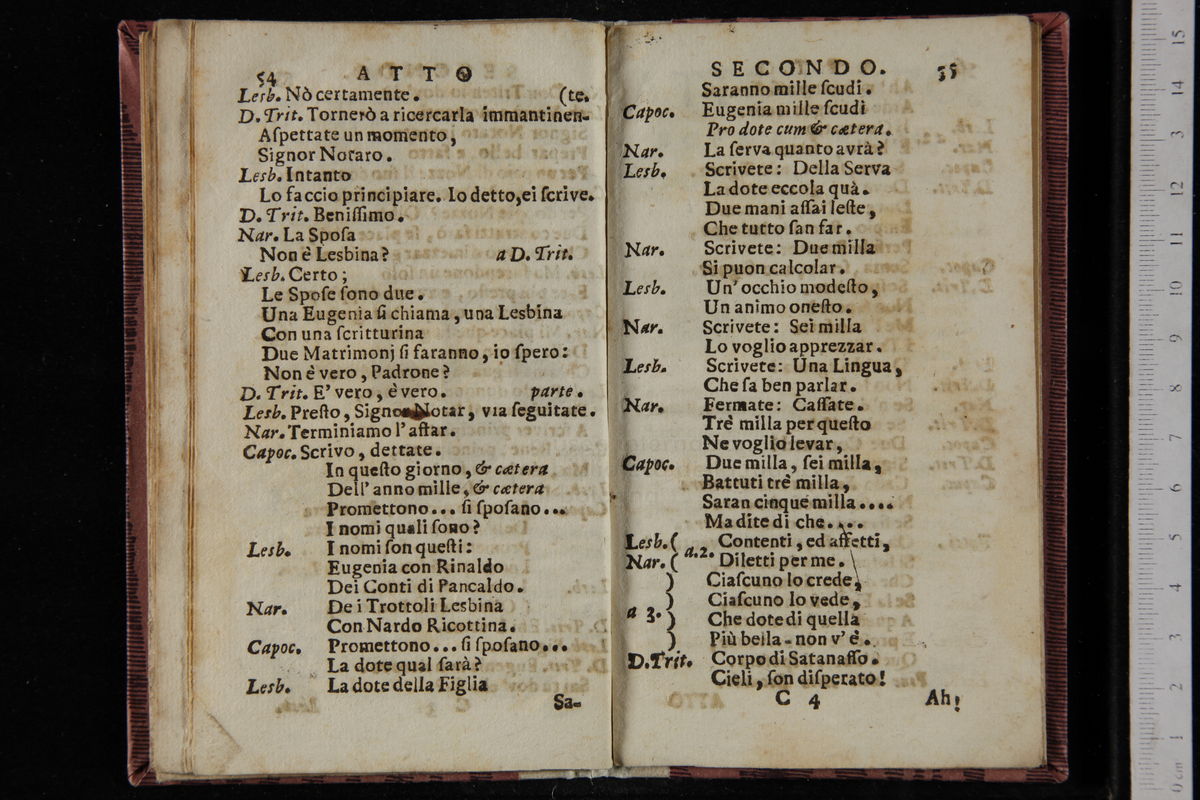 54 ATTO
Lesb. Nò certamente. (te.
D. Trit. Tornerò a ricercarla immantinen-
Aſpettate un momento,
Signor Notaro.
Lesb. Intanto
Lo faccio principiare. Io detto, ei ſcrive.
D. Trit. Beniſſimo.
Nar. La Spoſa
Non è Lesbina? a D. Trit.
Lesb. Certo;
Le Spoſe ſono due.
Una Eugenia ſi chiama, una Lesbina
Con una ſcritturina
Due Matrimonj ſi faranno, io ſpero:
Non è vero, Padrone?
D. Trit. E' vero, è vero. parte.
Lesb. Preſto, Signor Notar, via ſeguitate.
Nar. Terminiamo l'affar.
Capoc. Scrivo, dettate.
In queſto giorno, & cætera
Dell' anno mille, & cætera
Promettono... ſi ſpoſano...
I nomi quali ſono?
Lesb. I nomi ſon queſti:
Eugenia con Rinaldo
Dei Conti di Pancaldo.
Nar. De i Trottoli Lesbina
Con Nardo Ricottina.
Capoc. Promettono... ſi ſpoſano...
La dote qual ſarà?
Lesb. La dote della Figlia
Sa-
SECONDO. 55
Saranno mille ſcudi.
Capoc. Eugenia mille ſcudi
Pro dote cum & cætera.
Nar. La ſerva quanto avrà?
Lesb. Scrivete: Della Serva
La dote eccola quà.
Due mani aſſai leſte,
Che tutto ſan far.
Nar. Scrivete: Due milla
Si puon calcolar.
Lesb. Un' occhio modeſto,
Un animo oneſto.
Nar. Scrivete: Sei milla
Lo voglio apprezzar.
Lesb. Scrivete: Una Lingua,
Che ſa ben parlar.
Nar. Fermate: Caſſate.
Trè milla per queſto
Ne voglio levar,
Capoc. Due milla, ſei milla,
Battuti trè milla,
Saran cinque milla....
Ma dite di che....
Lesb. ( a.2. Contenti, ed affetti,
Nar. ( Diletti per me.
) Ciaſcuno lo crede,
) Ciaſcuno lo vede,
a 3. ) Che dote di quella
) Più bella - non v' è.
D. Trit. Corpo di Satanaſſo.
Cieli, ſon diſperato!
C 4 Ah!